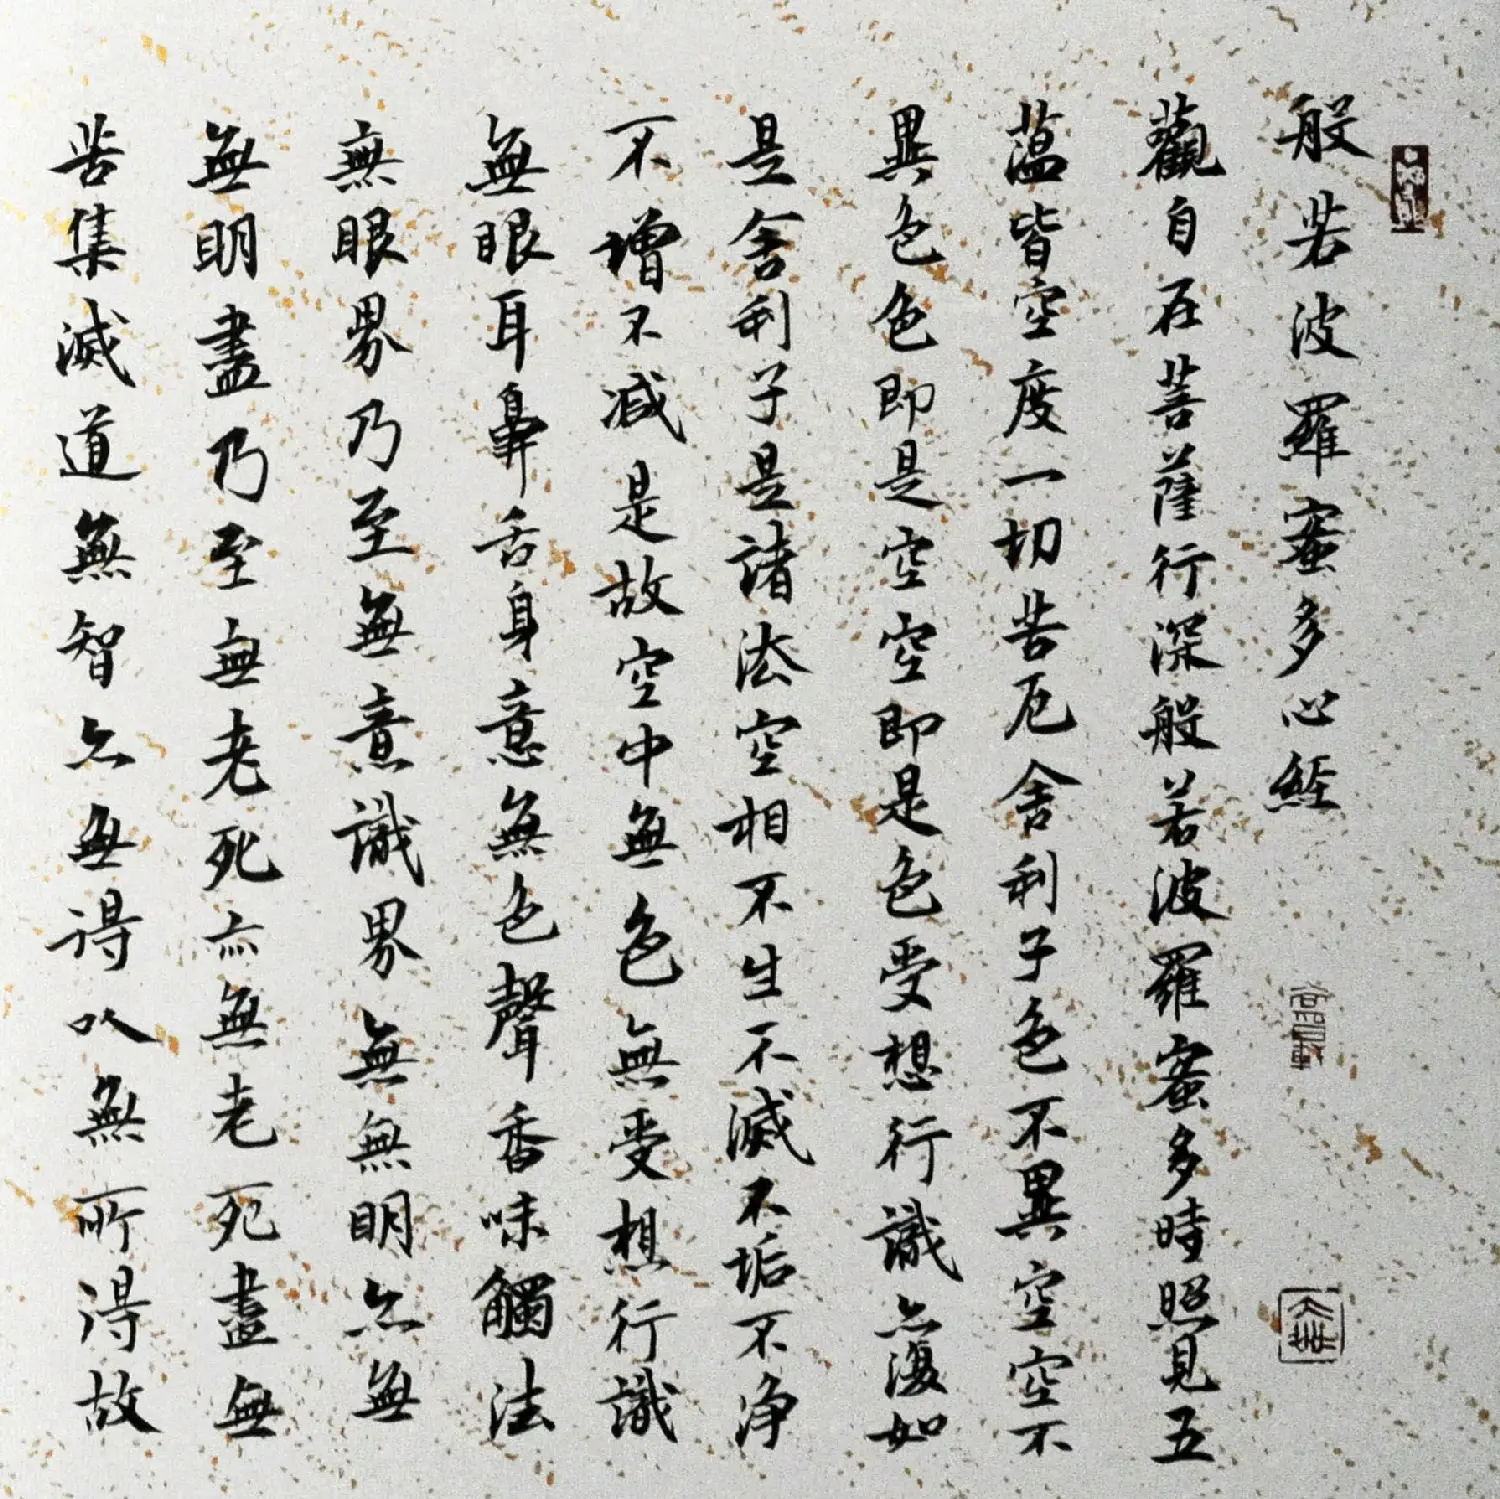 般若波羅蜜多心經
觀自在菩薩行深般若波羅蜜多時照見五
蕰皆空度一切苦厄舍利子色不異空空不
異色色即是空空即是色受想行識亦復如
是舍利子是諸法空相不生不滅不垢不净
不增不减是故空中無色無受想行識
無眼耳鼻舌身意無色聲香味觸法
無眼界乃至無意識界無無明亦無
無明盡乃至無老死亦無老死盡無
苦集滅道無智亦無得以無所得故